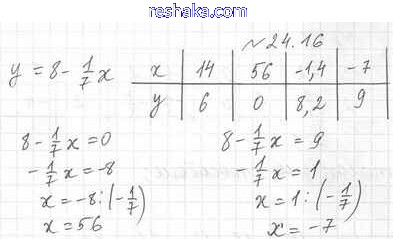 reshaka.com
№24.16
y = 8 - 1/7 x
x | 14 | 56 | -1,4 | -7
y | 6 | 0 | 8,2 | 9
8 - 1/7 x = 0
- 1/7 x = -8
x = -8 : (- 1/7)
x = 56
8 - 1/7 x = 9
- 1/7 x = 1
x = 1 : (- 1/7)
x = -7